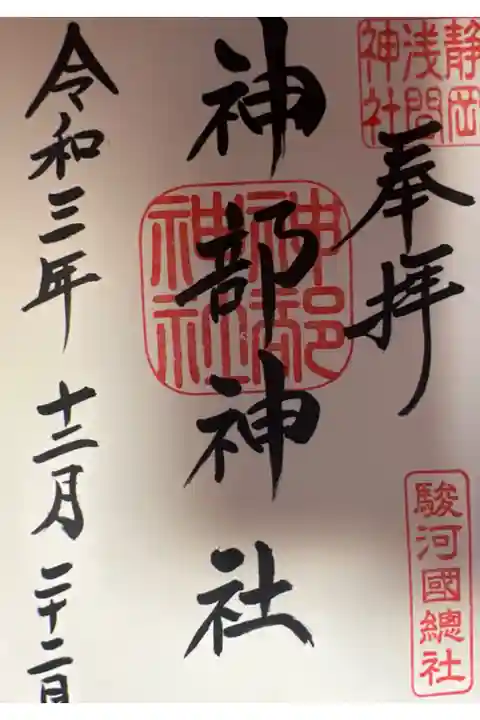 静岡
浅間
神社
奉拝
駿河國總社
神部神社
神部
神社
令和三年十二月二十二日